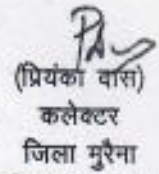 (प्रियंका दास)
कलेक्टर
जिला मुरैना